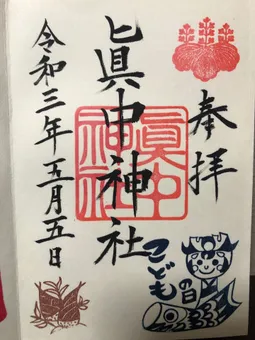 奉拝
眞中神社
眞中
神社
令和三年五月五日
こどもの日